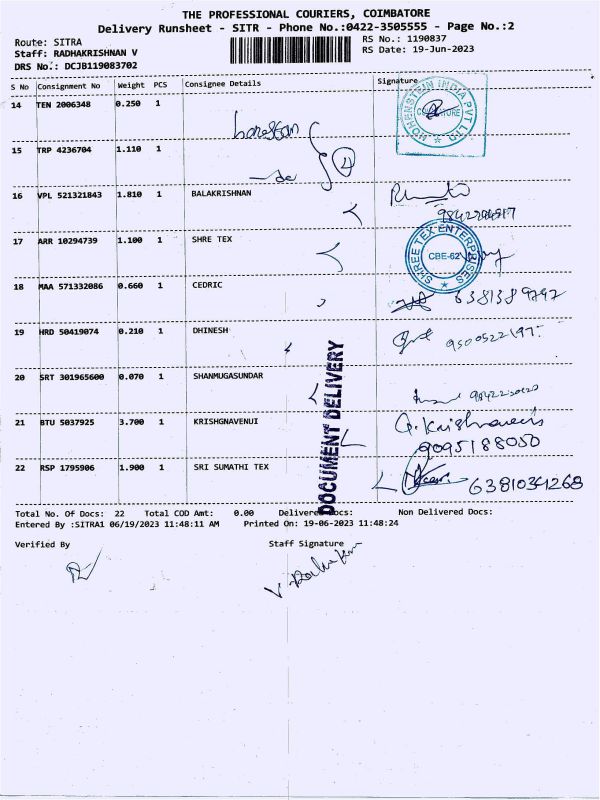 THE PROFESSIONAL COURIERS, COIMBATORE
Delivery Runsheet - SITR - Phone No.:0422-3505555 - Page No.:2
Route: SITRA
RS No.: 1190837
Staff: RADHAKRISHNAN V
RS Date: 19-Jun-2023
DRS No.: DCJB119083702
S No Consignment No Weight PCS Consignee Details Signature
14 TEN 2006348 0.250 1
HOHENSTEIN INDIA PVT LTD
15 TRP 4236704 1.110 1
4
16 VPL 521321843 1.810 1 BALAKRISHNAN
17 ARR 10294739 1.100 1 SHRE TEX
SHREE TEX ENTERPRISES
CBE-62
18 MAA 571332086 0.660 1 CEDRIC
6381389797
19 HRD 50419074 0.210 1 DHINESH
9500522197
20 SRT 301965600 0.070 1 SHANMUGASUNDAR
21 BTU 5037925 3.700 1 KRISHGNAVENUI
9095188050
22 RSP 1795906 1.900 1 SRI SUMATHI TEX
6381034268
DOCUMENT DELIVERY
Total No. Of Docs: 22 Total COD Amt: 0.00 Delivered Docs: Non Delivered Docs:
Entered By :SITRA1 06/19/2023 11:48:11 AM Printed On: 19-06-2023 11:48:24
Verified By Staff Signature